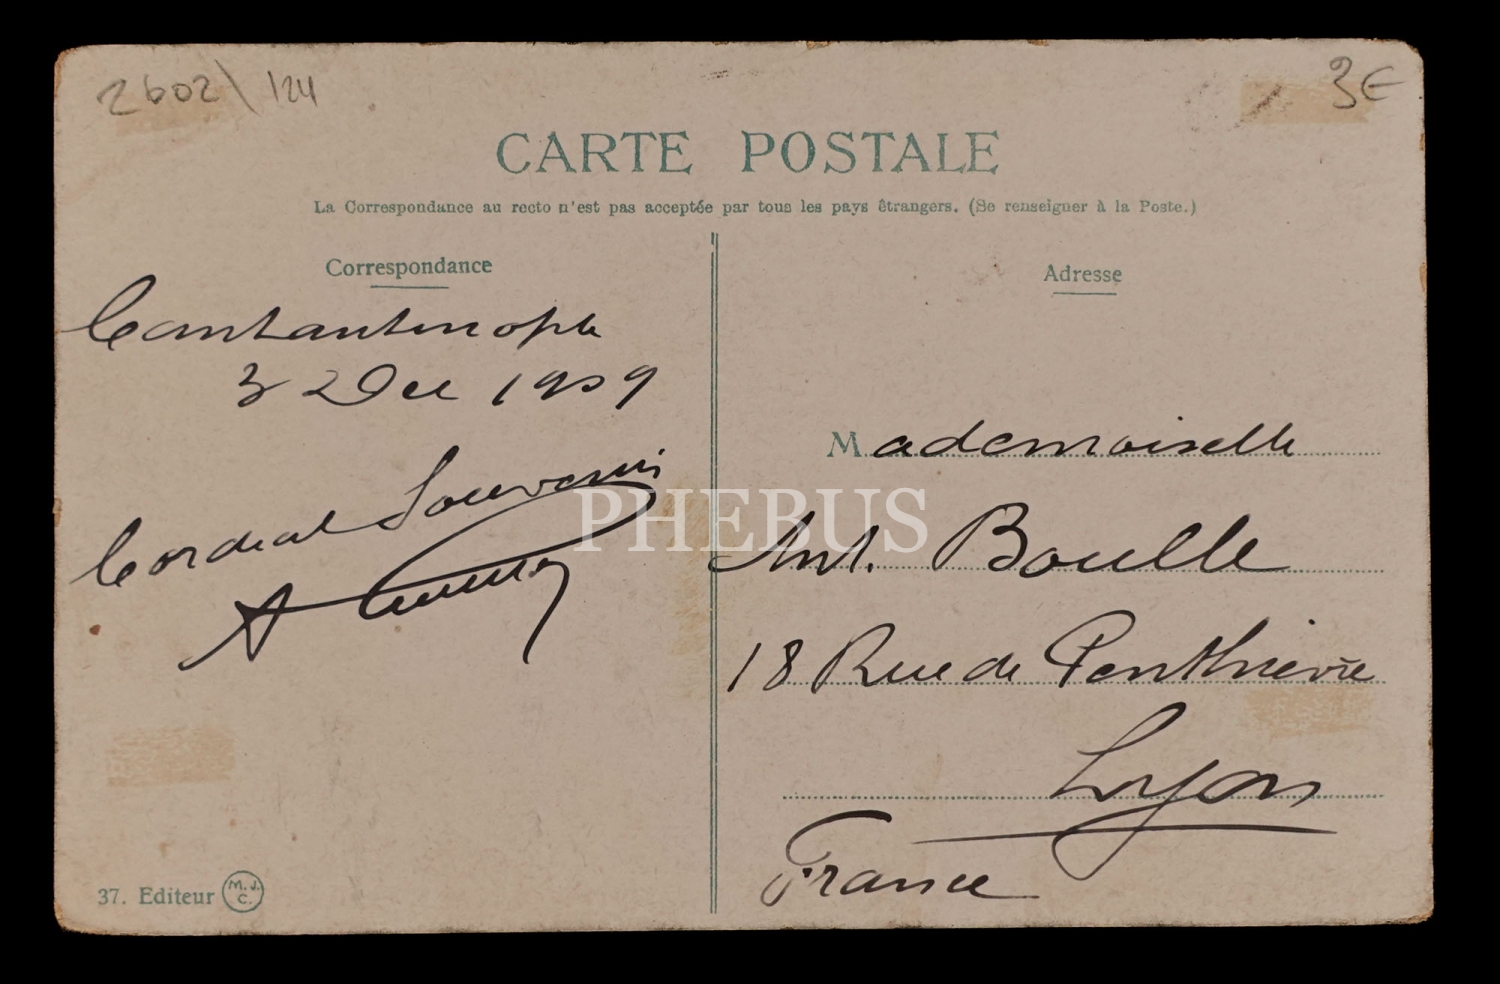 2602\124
3€
CARTE POSTALE
La Correspondance au recto n'est pas acceptée par tous les pays étrangers. (Se renseigner à la Poste.)
Correspondance
Constantinople
3 Dec 1909
Cordial Souvenir
A
Adresse
Mademoiselle
Ant. Boulle
18 Rue de Penthièvre
Lyon
France
37. Editeur M.J.C.
PHEBUS